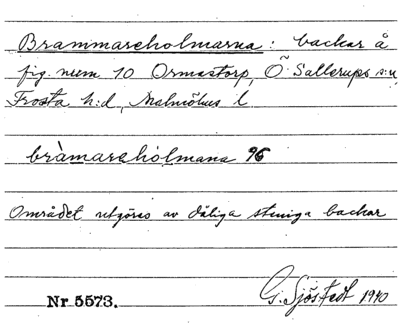 Brammareholmarna: backar å
fig. num 10 Ormastorp, Ö. Sallerups s:n,
Frosta h:d, Malmöhus l
bràmareholmana 96
Området utgöres av dåliga steniga backar
Nr 5573. G. Sjöstedt 1940